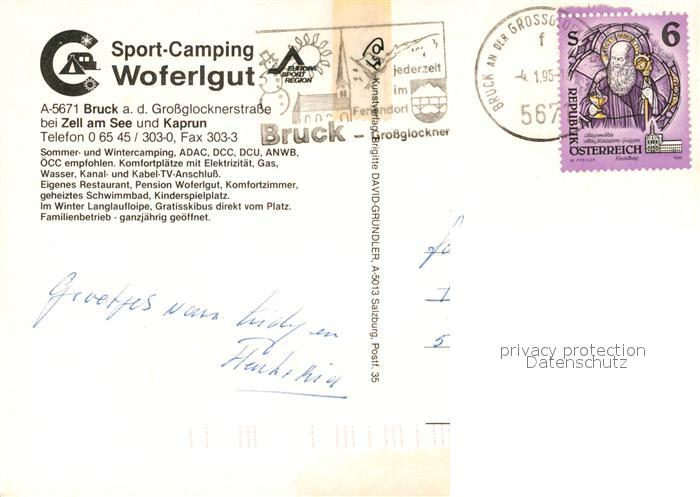 Sport-Camping
Woferlgut
A-5671 Bruck a. d. Großglocknerstraße
bei Zell am See und Kaprun
Telefon 0 65 45 / 303-0, Fax 303-3
Sommer- und Wintercamping, ADAC, DCC, DCU, ANWB,
ÖCC empfohlen. Komfortplätze mit Elektrizität, Gas,
Wasser, Kanal- und Kabel-TV-Anschluß.
Eigenes Restaurant, Pension Woferlgut, Komfortzimmer,
geheiztes Schwimmbad, Kinderspielplatz.
Im Winter Langlaufloipe, Gratisskibus direkt vom Platz.
Familienbetrieb - ganzjährig geöffnet.
EUROPA
SPORT
REGION
jederzeit
im
Feriendorf
Bruck - Großglockner
Kunstverlag Brigitte DAVID-GRÜNDLER, A-5013 Salzburg, Postf. 35
BRUCK AN DER GROSSGL
f
-4. 1.95-
567
S 6
REPUBLIK
ÖSTERREICH
Groetjes van
en
privacy protection
Datenschutz